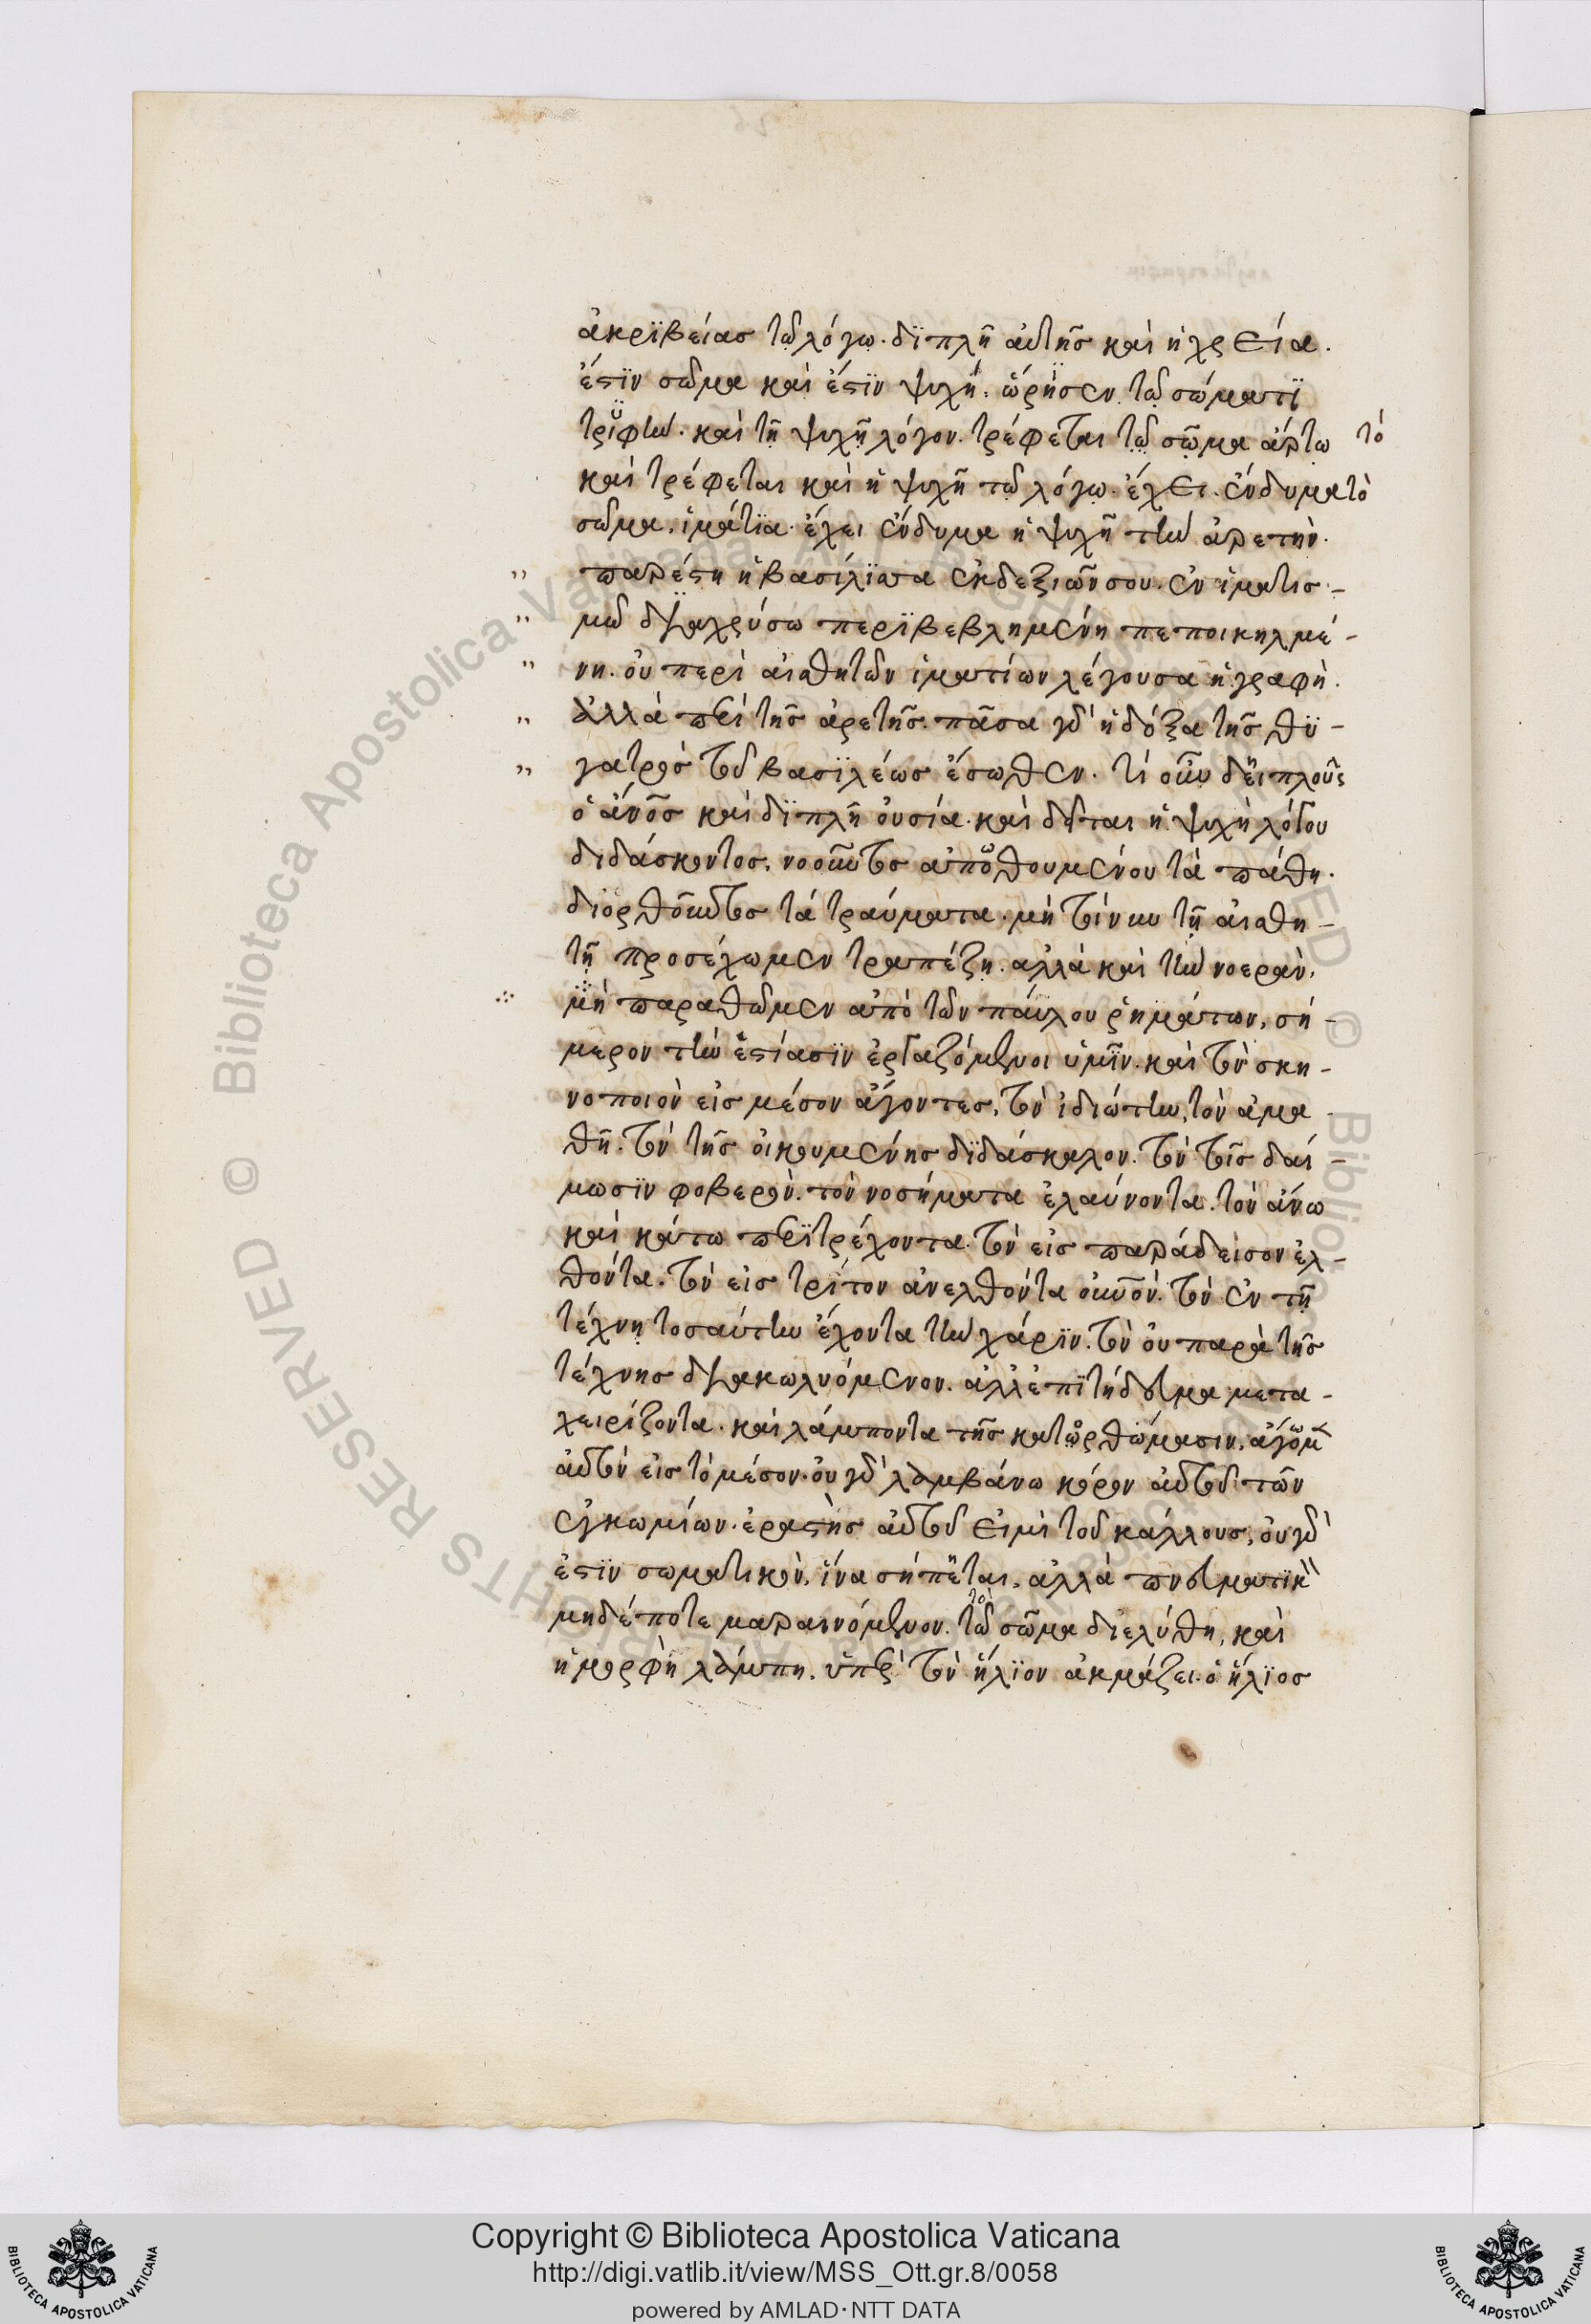 ἀκρϊβείασ τῶ λόγω. δϊπλῆ ἀυτῆσ καὶ ἡ χρεία.
ἔστϊν σῶμα καὶ ἔστϊν ψυχή. ὥρησεν τῶ σώματϊ
τρϋφὴν. καὶ τῆ ψυχῆ λόγον. τρέφεται τῶ σῶμα ἄρτω τό
καὶ τρέφεται καὶ ἡ ψυχῆ τῶ λόγω. ἔχει ἔνδυμα τὸ
σῶμα. ἱμάτϊα. ἔχει ἔνδυμα ἡ ψυχῆ τὴν ἀρετὴν.
,, παρέστη ἡ βασίλϊσσα ἐκ δεξιῶν σου. ἐν ἱματισ -
,, μῶ διαχρύσω περϊβεβλημένη πεποικηλμέ -
,, νη. ὀυ περὶ ἀισθητῶν ἱματίων λέγουσα ἡ γραφὴ.
,, ἀλλὰ περὶ τῆσ ἀρετῆσ. πᾶσα γὰρ ἡ δόξα τῆσ θϋ -
,, γατρὸσ τοῦ βασϊλέωσ ἔσωθεν. τί οὖν δϊπλοῦς
ὁ ἀνοσ καὶ δϊπλῆ ὀυσία. καὶ δεῖται ἡ ψυχὴ λόγου
διδάσκοντοσ. νοοῦντοσ ἀποθουμένου τὰ πάθη.
διορθοῦντοσ τὰ τραύματα. μὴ τοίνυν τῆ ἀισθη -
τῆ προσέχωμεν τραπέζη. ἀλλὰ καὶ τὴν νοερὰν.
μὴ παραθῶμεν ἀπὸ τῶν πάυλου ῥημάτων, σή -
μερον τὴν ἑστίασϊν ἐργαζόμενοι ὑμῖν. καὶ τὸν σκη -
νοποιὸν εἰσ μέσον ἄγοντεσ. τὸν ἰδιώτην, τὸν ἀμα -
θῆ. τὸν τῆσ ὀικουμένησ δϊδάσκαλον. τὸν τοῖσ δαί -
μωσϊν φοβερὸν. τὸν νοσήματα ἐλαύνοντα. τὸν ἄνω
καὶ κάτω περϊτρέχοντα. τὸν εἰσ παράδεισον ἐλ -
θόντα. τὸν εἰσ τρίτον ἀνελθόντα οὐνὸν. τὸν ἐν τῆ
τέχνη τοσαύτην ἔχοντα τὴν χάρϊν. τὸν ὀυ παρὰ τῆσ
τέχνησ διακωλυόμενον. ἀλλ' ἐπϊτήδευμα μετα -
χειρίζοντα. καὶ λάμποντα τῆσ κατορθώμασιν. ἄγομεν
ἀυτὸν εἰσ τὸ μέσον. ὀυ γὰρ λαμβάνω κόρον ἀυτοῦ τῶν
ἐγκωμίων. ἐραστὴσ ἀυτοῦ εἰμὶ τοῦ κάλλουσ. ὀυ γὰρ
ἐστϊν σωματικὸν. ἵνα σήπεται. ἀλλὰ πνευματικὸν
μηδέποτε μαραινόμενον. τὸ σῶμα διελύθη, καὶ
ἡ μορφὴ λάμπη. ὑπὲρ τὸν ἥλϊον ἀκμάζει. ὁ ἥλϊοσ
Copyright © Biblioteca Apostolica Vaticana
http://digi.vatlib.it/view/MSS_Ott.gr.8/0058
powered by AMLAD·NTT DATA